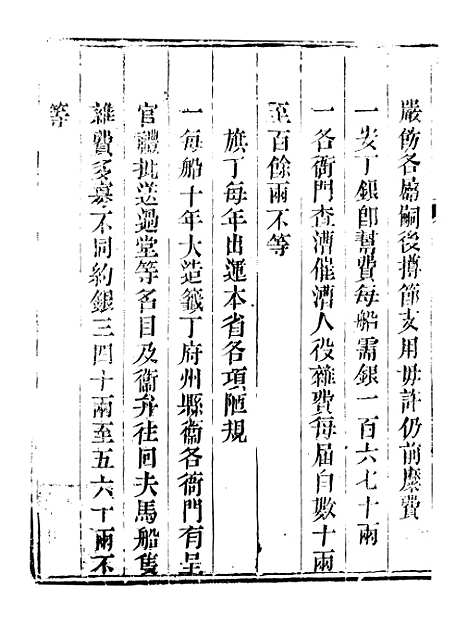 嚴飭各屬嗣後撙節支用毋許仍前縻費
一安丁銀卽幫費每船需銀一百六七十兩
一各衙門查漕催漕人役雜費每屆自數十兩
至百餘兩不等
旗丁每年出運本省各項陋規
一每船十年大造籤丁府州縣衞各衙門有呈
官禮批送過堂等名目及衞弁往回夫馬船隻
雜費多寡不同約銀三四十兩至五六十兩不
等